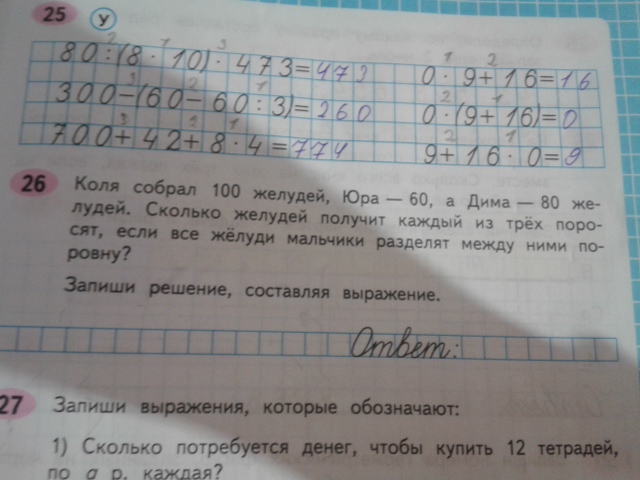 25 У
2 1 3 1 2
80:(8·10)·473=473 0·9+16=16
3 2 1 2 1
300-(60-60:3)=260 0·(9+16)=0
3 2 1 2 1
700+42+8·4=774 9+16·0=9
26 Коля собрал 100 желудей, Юра — 60, а Дима — 80 же-
лудей. Сколько желудей получит каждый из трёх поро-
сят, если все жёлуди мальчики разделят между ними по-
ровну?
Запиши решение, составляя выражение.
Ответ:
27 Запиши выражения, которые обозначают:
1) Сколько потребуется денег, чтобы купить 12 тетрадей,
по a р. каждая?